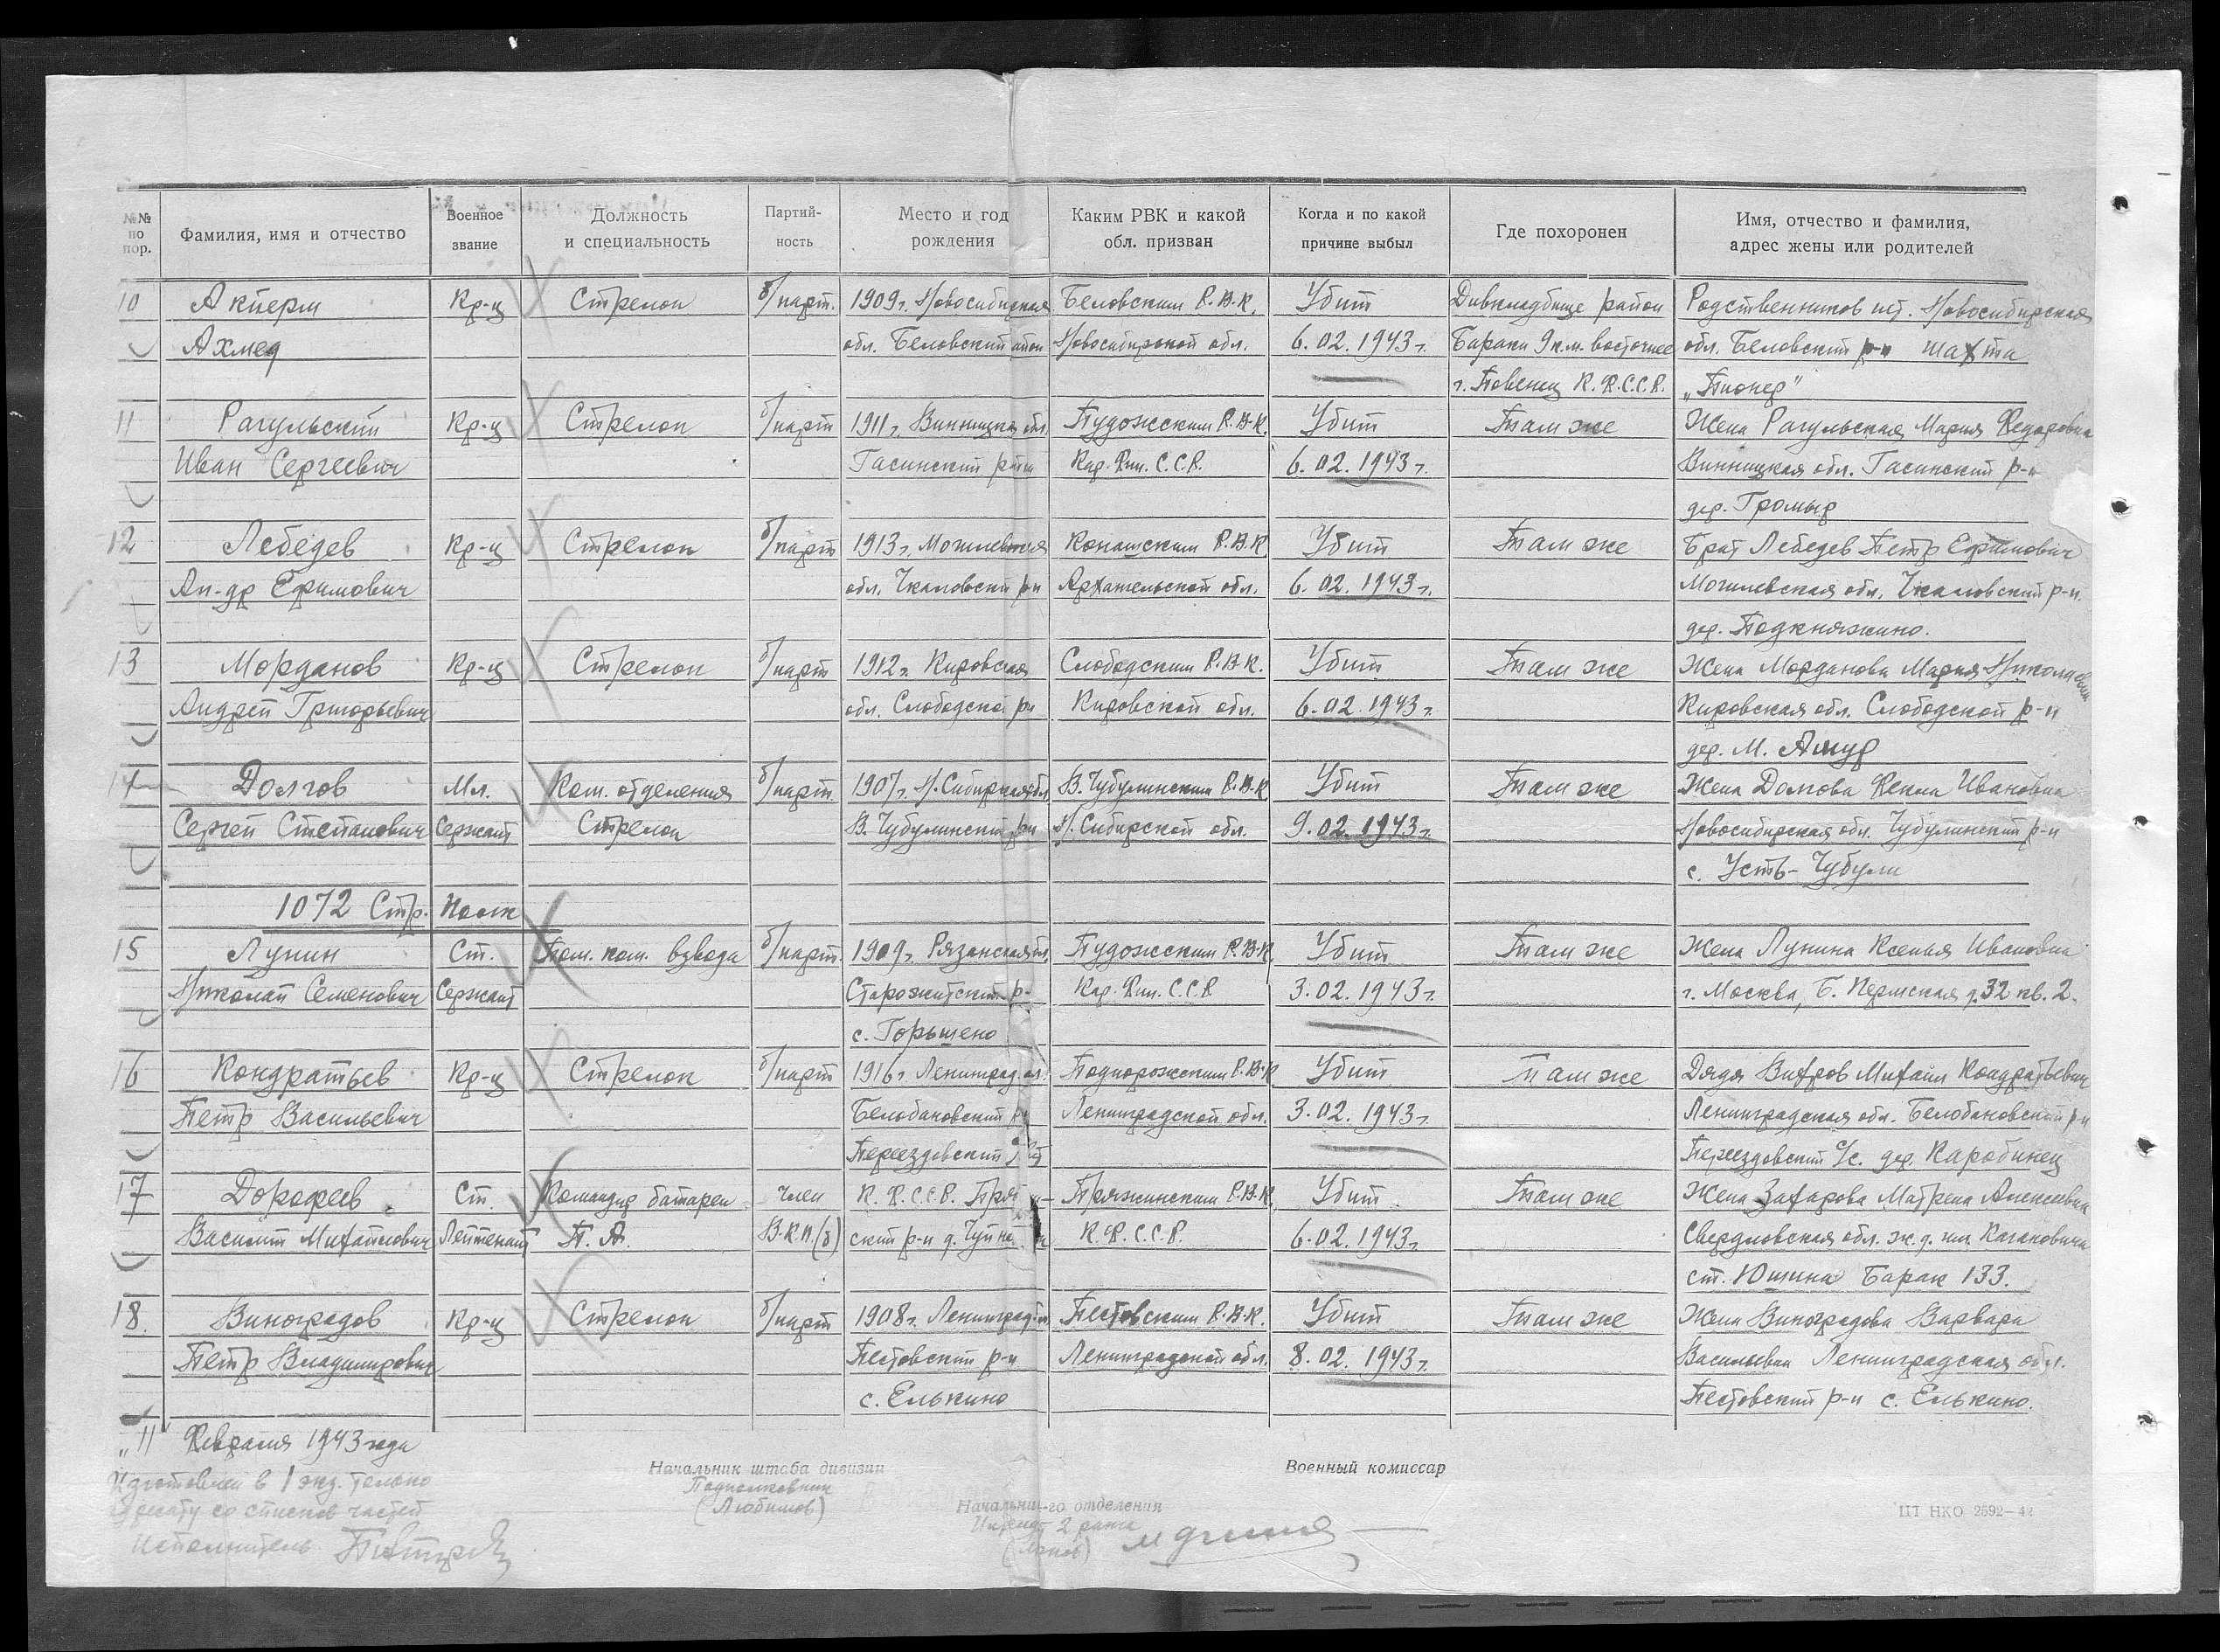 №№ по пор.
Фамилия, имя и отчество
Военное звание
Должность и специальность
Партий-ность
Место и год рождения
Каким РВК и какой обл. призван
Когда и по какой причине выбыл
Где похоронен
Имя, отчество и фамилия, адрес жены или родителей
10 Акперм Кр-ц Стрелок б/парт. 1909г. Новосибирская Беловским Р.В.К. Убит Дивкладбище район Родственников нет. Новосибирская
Ахмед обл. Беловский район Новосибирской обл. 6.02.1943г. Бараки 9 к.м. восточнее обл. Беловский р-н шахта
г. Повенец К.Ф.С.С.Р. „Пионер"
11 Рагульский Кр-ц Стрелок б/парт 1911г. Винницкая обл. Пудожским Р.В.К. Убит Там же Жена Рагульская Мария Федоровна
Иван Сергеевич Гасинский район Кар. Фин. С.С.Р. 6.02.1943г. Винницкая обл. Гасинский р-н
дер. Громыр
12 Лебедев Кр-ц Стрелок б/парт 1913г. Могилевская Коношским Р.В.К Убит Там же Брат Лебедев Петр Ефимович
Ал-др Ефимович обл. Чкаловский р-н Архангельской обл. 6.02.1943г. Могилевская обл. Чкаловский р-н.
дер. Подкняжино.
13 Морданов Кр-ц Стрелок б/парт 1912г. Кировская Слободским Р.В.К. Убит Там же Жена Морданова Мария Николаевна
Андрей Григорьевич обл. Слободской р-н Кировской обл. 6.02.1943г. Кировская обл. Слободской р-н
дер. М. Ашур
14 Долгов Мл. Ком. отделения б/парт. 1907г. Н.Сибирская обл В.Чубулинским Р.В.К Убит Там же Жена Долгова Фекла Ивановна
Сергей Степанович Сержант Стрелок В.Чубулинский р-н Н.Сибирской обл. 9.02.1943г. Новосибирская обл. Чубулинский р-н
с. Усть-Чубули
1072 Стр. Полк
15 Лунин Ст. Пом. ком. взвода б/парт. 1909г. Рязанская обл. Пудожским Р.В.К. Убит Там же Жена Лунина Ксенья Ивановна
Николай Семенович Сержант Старожитский р- Кар. Фин. С.С.Р 3.02.1943г. г. Москва, Б. Пермская д.32 кв. 2.
с. Горышено
16 Кондратьев Кр-ц Стрелок б/парт 1916г. Ленинград. ол. Подпорожским Р.В.К Убит Там же Дядя Вихров Михаил Кондратьевич
Петр Васильевич Белобановский р-н Ленинградской обл. 3.02.1943г. Ленинградская обл. Белобановский р-н
Переездовский Переездовский с/с. дер. Каробинец
17 Дорофеев Ст. Командир батареи Член К.Ф.С.С.Р. Пряжин- Пряжинским Р.В.К. Убит Там же Жена Захарова Матрена Алексеевна
Василий Михайлович Лейтенант П.А. В.К.П.(б) ский р-н д. К.Ф.С.С.Р. 6.02.1943г. Свердловская обл. ж.д. им. Кагановича
ст. Юшина Барак 133.
18. Виноградов Кр-ц Стрелок б/парт 1908г. Ленинград. Пестовским Р.В.К. Убит Там же Жена Виноградова Варвара
Петр Владимирович Пестовский р-н Ленинградской обл. 8.02.1943г. Васильевна Ленинградская обл.
с. Елькино Пестовский р-н с. Елькино.
„11 Февраля 1943 года
Изготовлен в 1 экз. только
адресату со списков частей
Исполнитель
Начальник штаба дивизии
Подполковник
(Любимов)
Военный комиссар
Начальник -го отделения
2 ранга
ЦТ НКО 2592—42